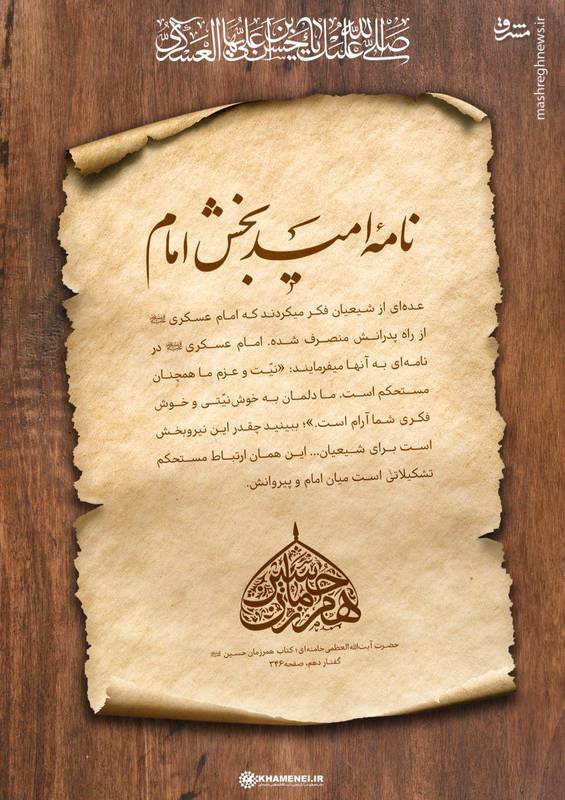 صَلَّی اللهُ عَلَیْكَ یا حَسَنَ بْنَ عَلِیٍّ العَسْکَری
مشرق
mashreghnews.ir
نامهٔ امیدبخش امام
عده‌ای از شیعیان فکر میکردند که امام عسکری
از راه پدرانش منصرف شده. امام عسکری در
نامه‌ای به آنها میفرمایند: «نیّت و عزم ما همچنان
مستحکم است. ما دلمان به خوش‌نیّتی و خوش
فکری شما آرام است.»؛ ببینید چقدر این نیروبخش
است برای شیعیان... این همان ارتباط مستحکم
تشکیلاتیٰ است میان امام و پیروانش.
هم‌رزمان حسین
حضرت آیت‌الله‌العظمی خامنه‌ای؛ کتاب همرزمان حسین
گفتار دهم، صفحه ۳۴۶
KHAMENEI.IR